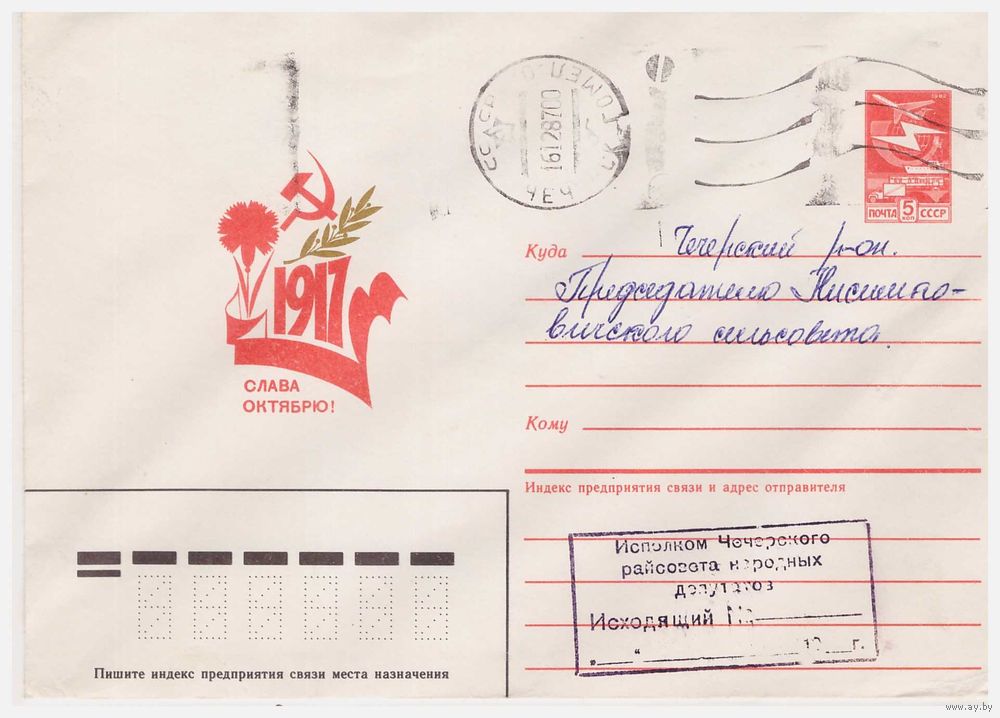 1917
СЛАВА
ОКТЯБРЮ!
1982
ПОЧТА 5 КОП СССР
16128700
Куда Чечерский р-он.
Председателю Нисимко-
вичского сельсовета.
Кому
Индекс предприятия связи и адрес отправителя
Исполком Чечерского
райсовета народных
депутатов
Исходящий №
„ “ 19 г.
Пишите индекс предприятия связи места назначения
www.ay.by